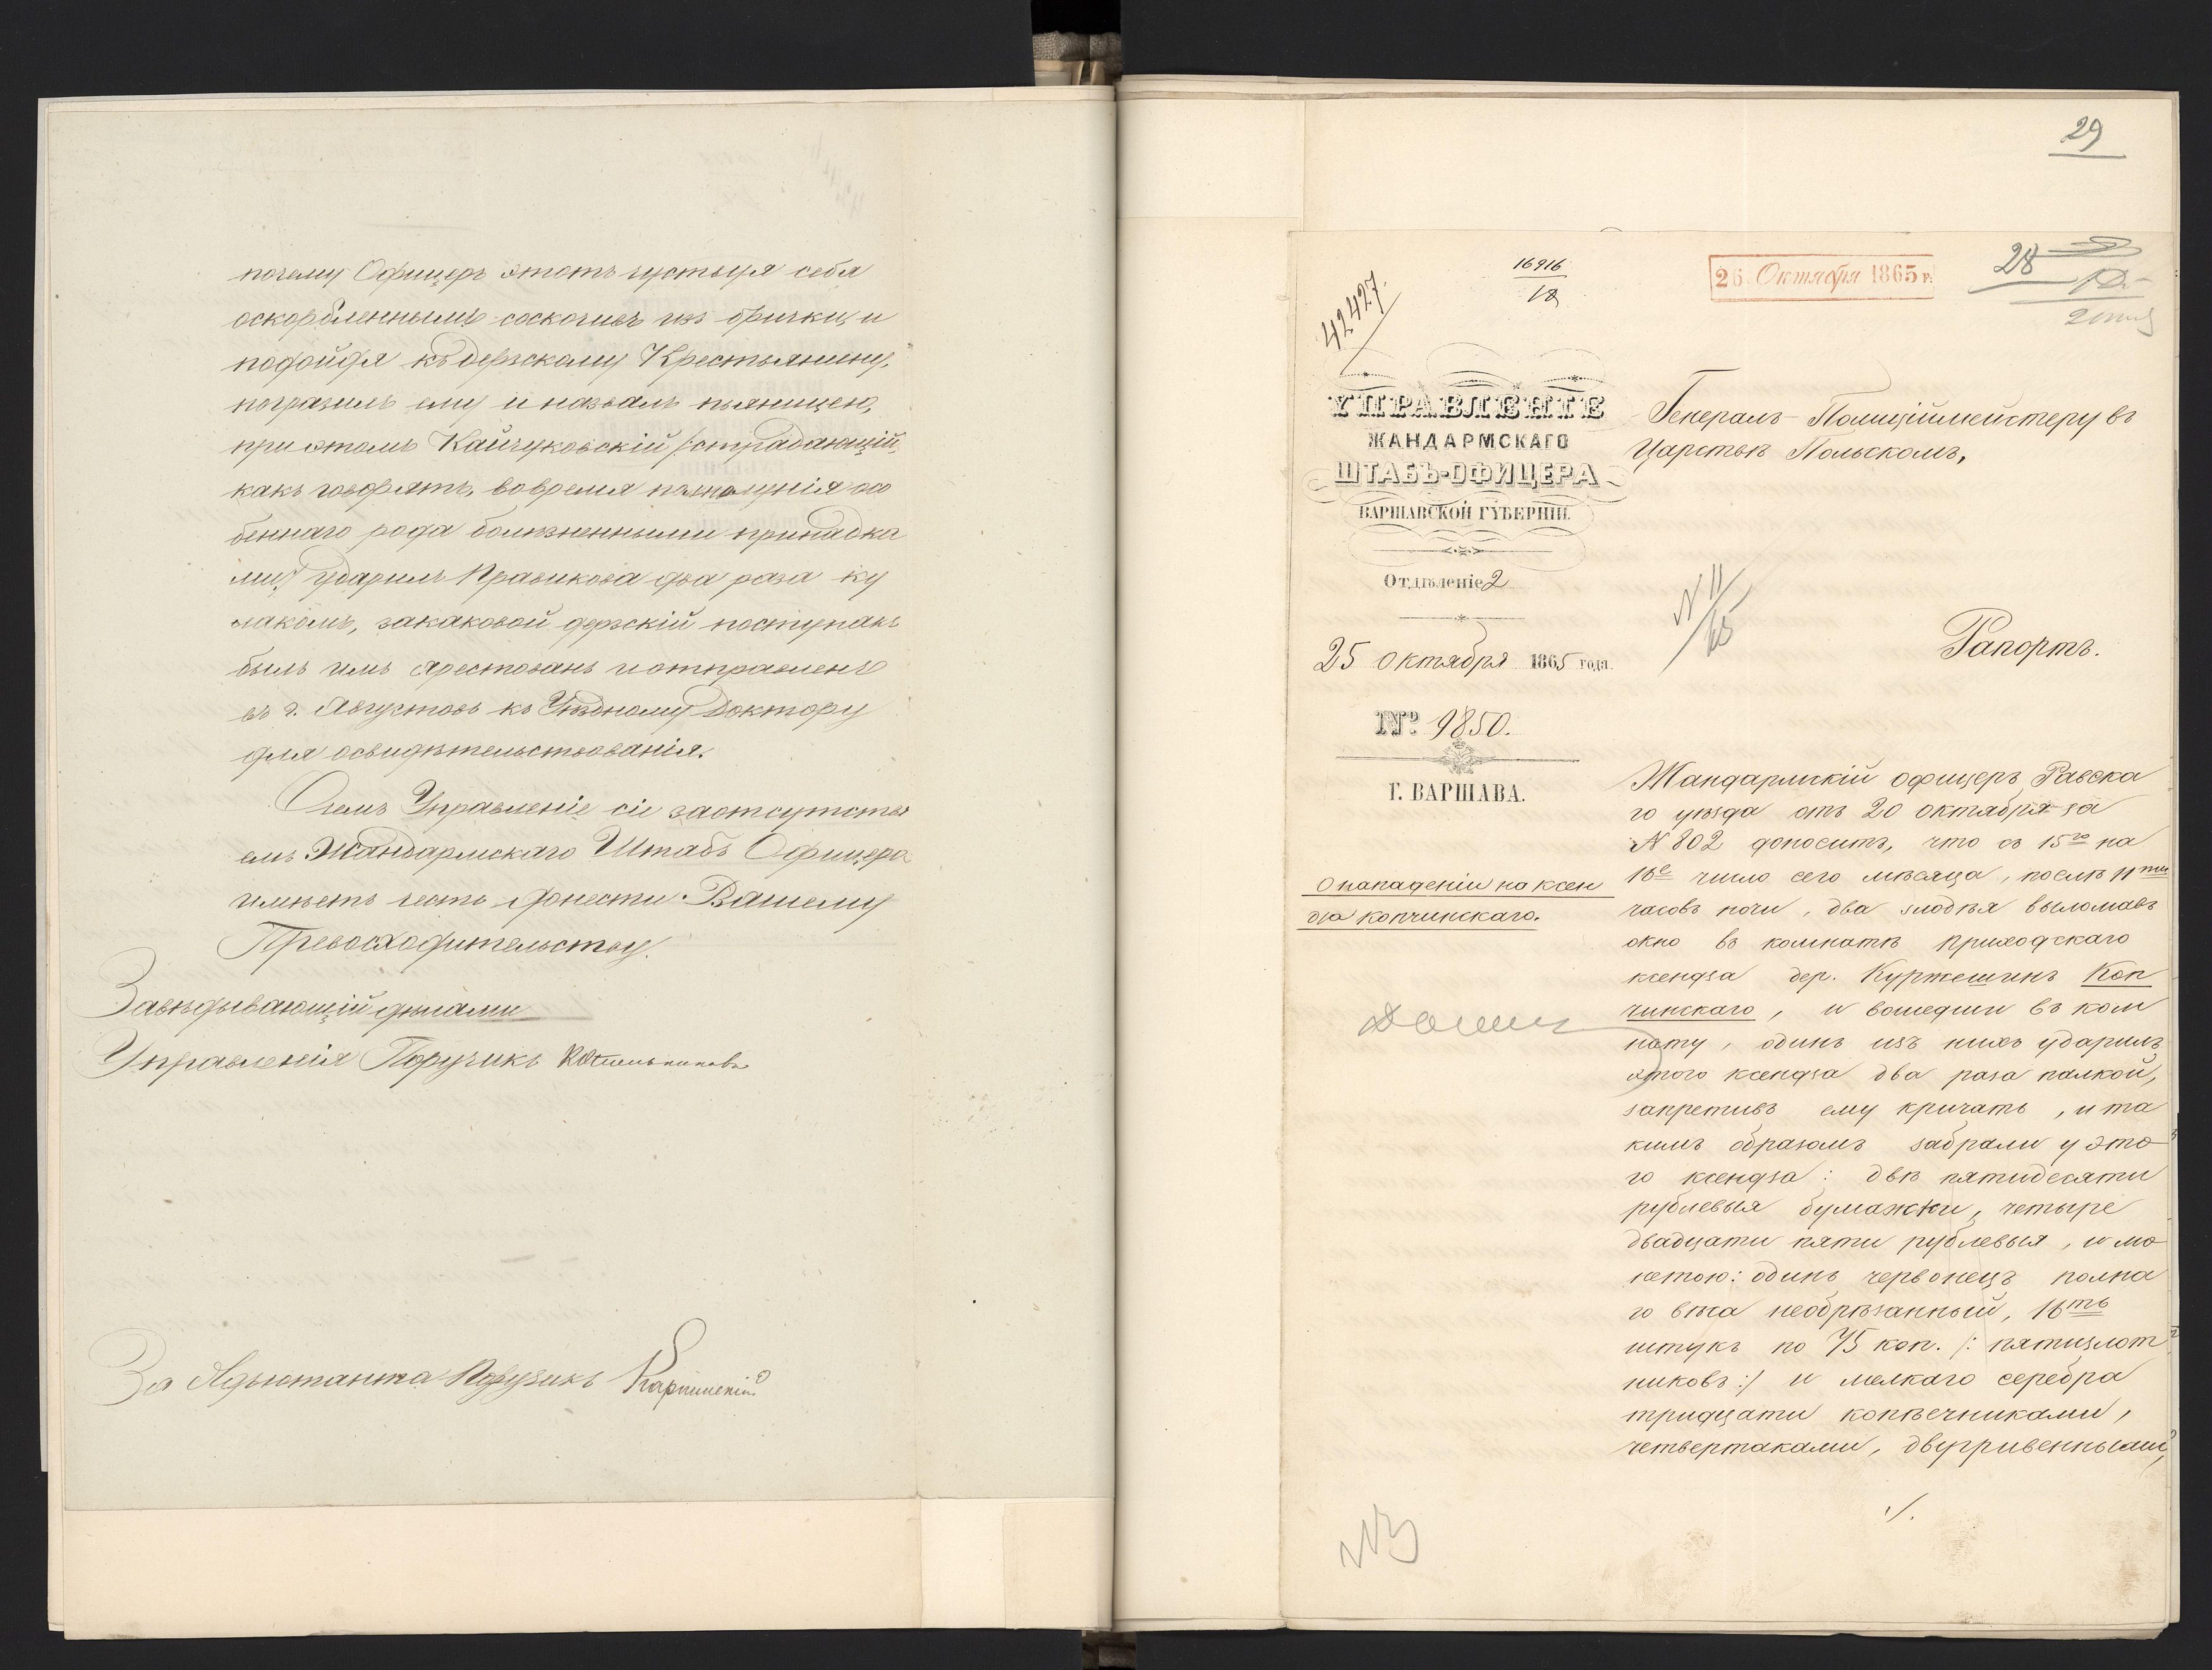 почему Офицеръ этотъ чуствуя себя
оскорбленнымъ соскочивъ изъ брички и
подойдя къ дерзскому Крестьянину,
погразилъ ему и назвалъ пьяницею,
при этомъ Кайчуковскій /страдающій,
какъ говорятъ, вовремя полнолунія осо
беннаго рода болѣзненными припадка
ми/ ударилъ Правикова два раза ку
лакомъ, закаковой дерзскій поступакъ
былъ имъ арестованъ и отправленъ
въ г. Августовъ къ Уѣздному Доктору
для освидѣтельствованія.
О чемъ Управленіе сіе заотсутстві
емъ Жандармскаго Штабъ Офицера
имѣетъ честь донести Вашему
Превосходительству.
Завѣдывающій дѣлами
Управленія Поручикъ
За Адъютанта Поручикъ
29
16916
18
42427
26 Октября 1865 г.
28
УПРАВЛЕНІЕ
ЖАНДАРМСКАГО
ШТАБЪ-ОФИЦЕРА
ВАРШАВСКОЙ ГУБЕРНІИ.
Отдѣленіе 2
25 октября 1865 года.
№ 9850.
Г. ВАРШАВА.
О нападеніи на ксен
дза Копчинскаго.
Генералъ-Полицiймейстеру въ
Царствѣ Польскомъ,
N 11/65
Рапортъ.
Жандармскій офицеръ Равска
го уѣзда отъ 20 октября за
N 802 доноситъ, что съ 15го на
16е число сего мѣсяца, послѣ 11ти
часовъ ночи, два злодѣя выломавъ
окно въ комнатѣ приходскаго
ксендза дер. Куржешинъ Коп
чинскаго, и вошедши въ ком
нату, одинъ изъ нихъ ударилъ
этого ксендза два раза палкой,
запретивъ ему кричать, и та
кимъ образомъ забрали у это
го ксендза: двѣ пятидесяти
рублевыя бумажки, четыре
двадцати пяти рублевыя, и мо
нетою: одинъ червонецъ полна
го вѣса необрѣзанный, 16ть
штукъ по 75 коп. /: пятизлот
никовъ :/ и мелкаго серебра
тридцати копѣечниками,
четвертаками, двугривенными,